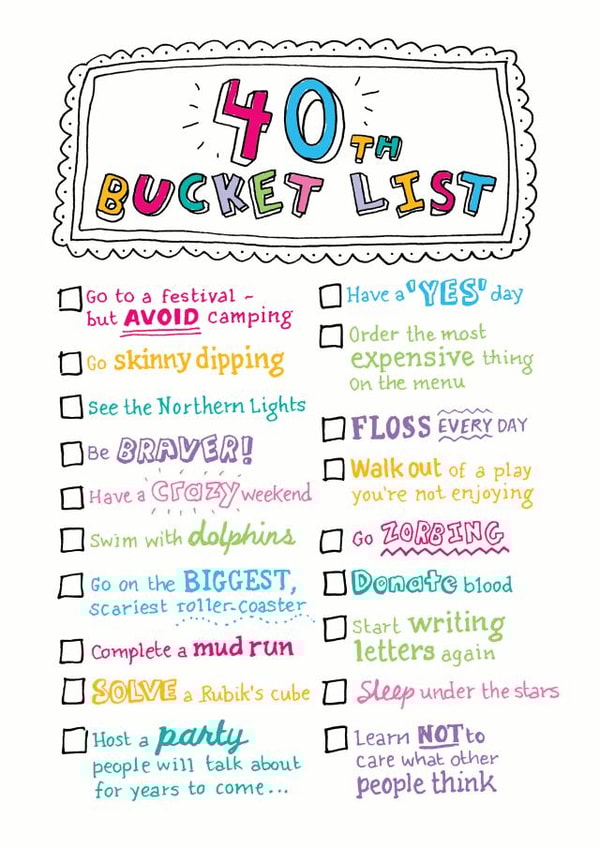 40TH
BUCKET LIST
Go to a festival ~
but AVOID camping
Go skinny dipping
See the Northern Lights
Be BRAVER!
Have a crazy weekend
Swim with dolphins
Go on the BIGGEST,
scariest roller-coaster
Complete a mud run
SOLVE a Rubik's cube
Host a party
people will talk about
for years to come...
Have a 'YES' day
Order the most
expensive thing
on the menu
FLOSS EVERY DAY
Walk out of a play
you're not enjoying
Go ZORBING
Donate blood
Start writing
letters again
Sleep under the stars
Learn NOT to
care what other
people think